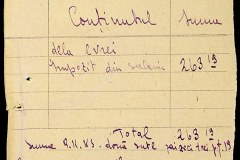 Conținutul Suma
dela Evrei
Impozit din salarii 263 19
Total 263 19
două sute șaizeci trei pt. 19